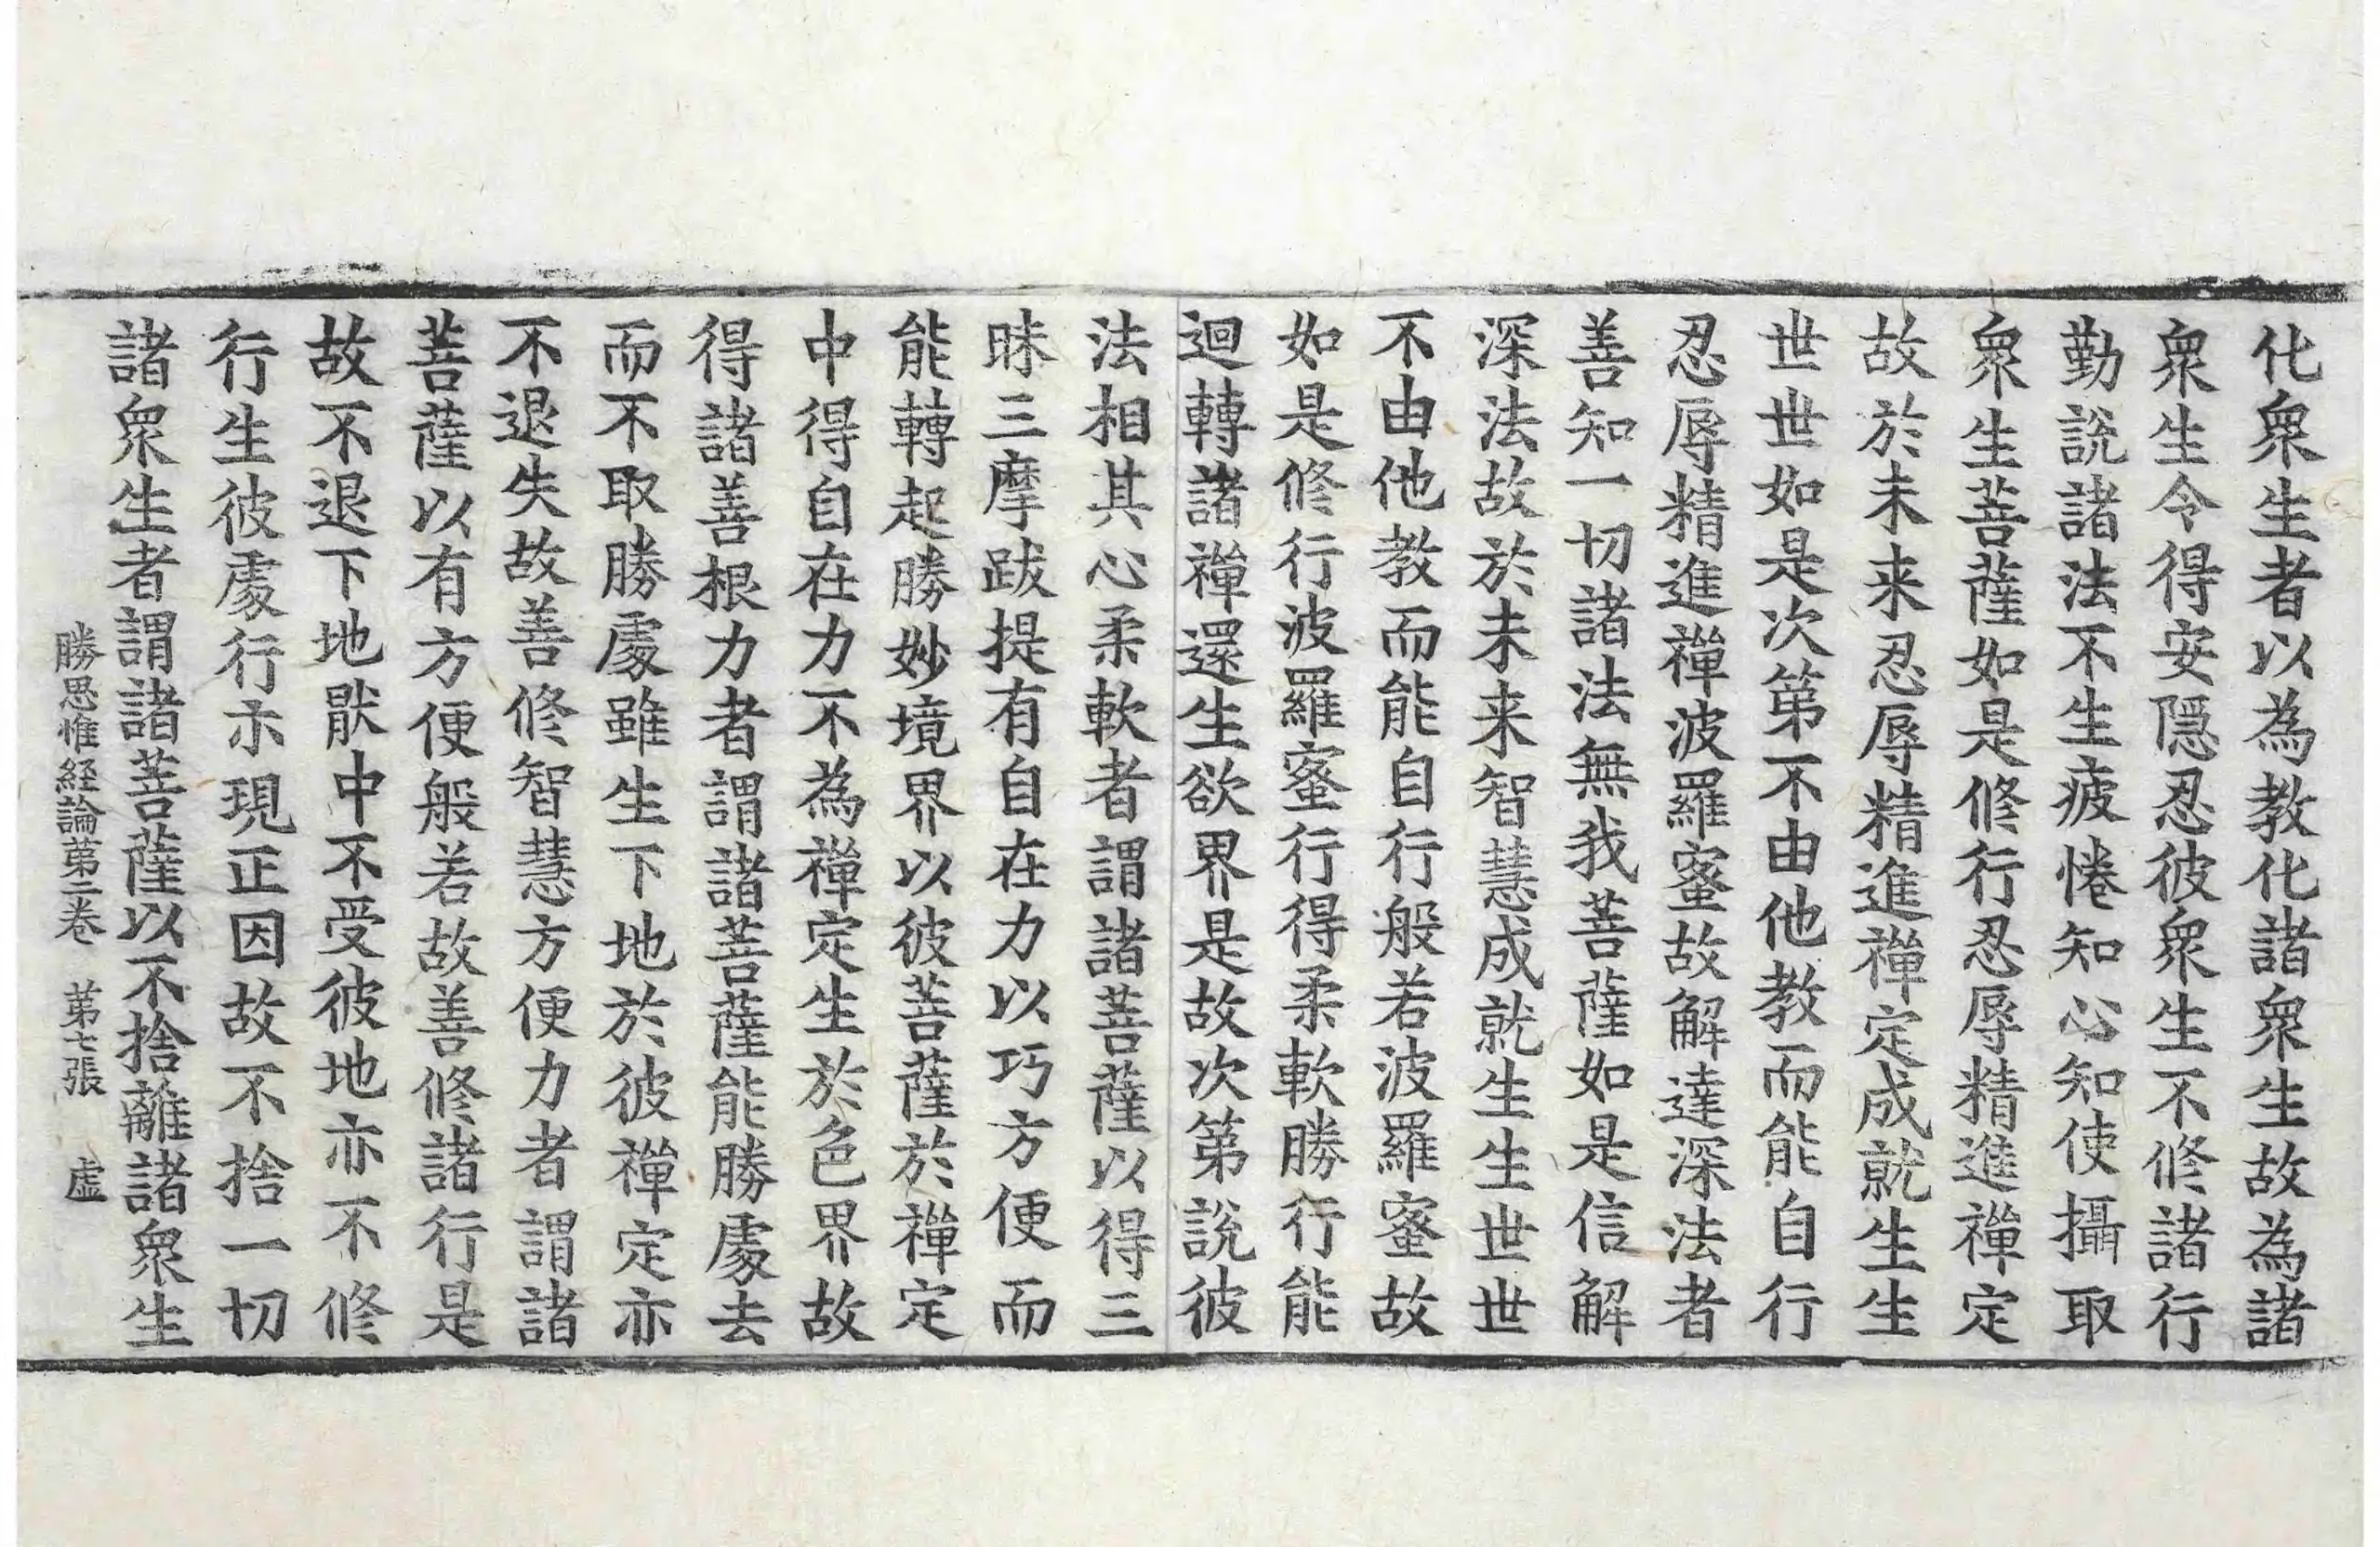 化衆生者以為教化諸衆生故為諸
衆生令得安隱忍彼衆生不修諸行
勤說諸法不生疲惓知心知使攝取
衆生菩薩如是修行忍辱精進禪定
故於未来忍辱精進禪定成就生生
世世如是次第不由他教而能自行
忍辱精進禪波羅蜜故解達深法者
善知一切諸法無我菩薩如是信解
深法故於未来智慧成就生生世世
不由他教而能自行般若波羅蜜故
如是修行波羅蜜行得柔軟勝行能
迴轉諸禪還生欲界是故次第說彼
法相其心柔軟者謂諸菩薩以得三
昧三摩跋提有自在力以巧方便而
能轉起勝妙境界以彼菩薩於禪定
中得自在力不為禪定生於色界故
得諸善根力者謂諸菩薩能勝處去
而不取勝處雖生下地於彼禪定亦
不退失故善修智慧方便力者謂諸
菩薩以有方便般若故善修諸行是
故不退下地猒中不受彼地亦不修
行生彼處行示現正因故不捨一切
諸衆生者謂諸菩薩以不捨離諸衆生
勝思惟経論第二卷 第七張 虛